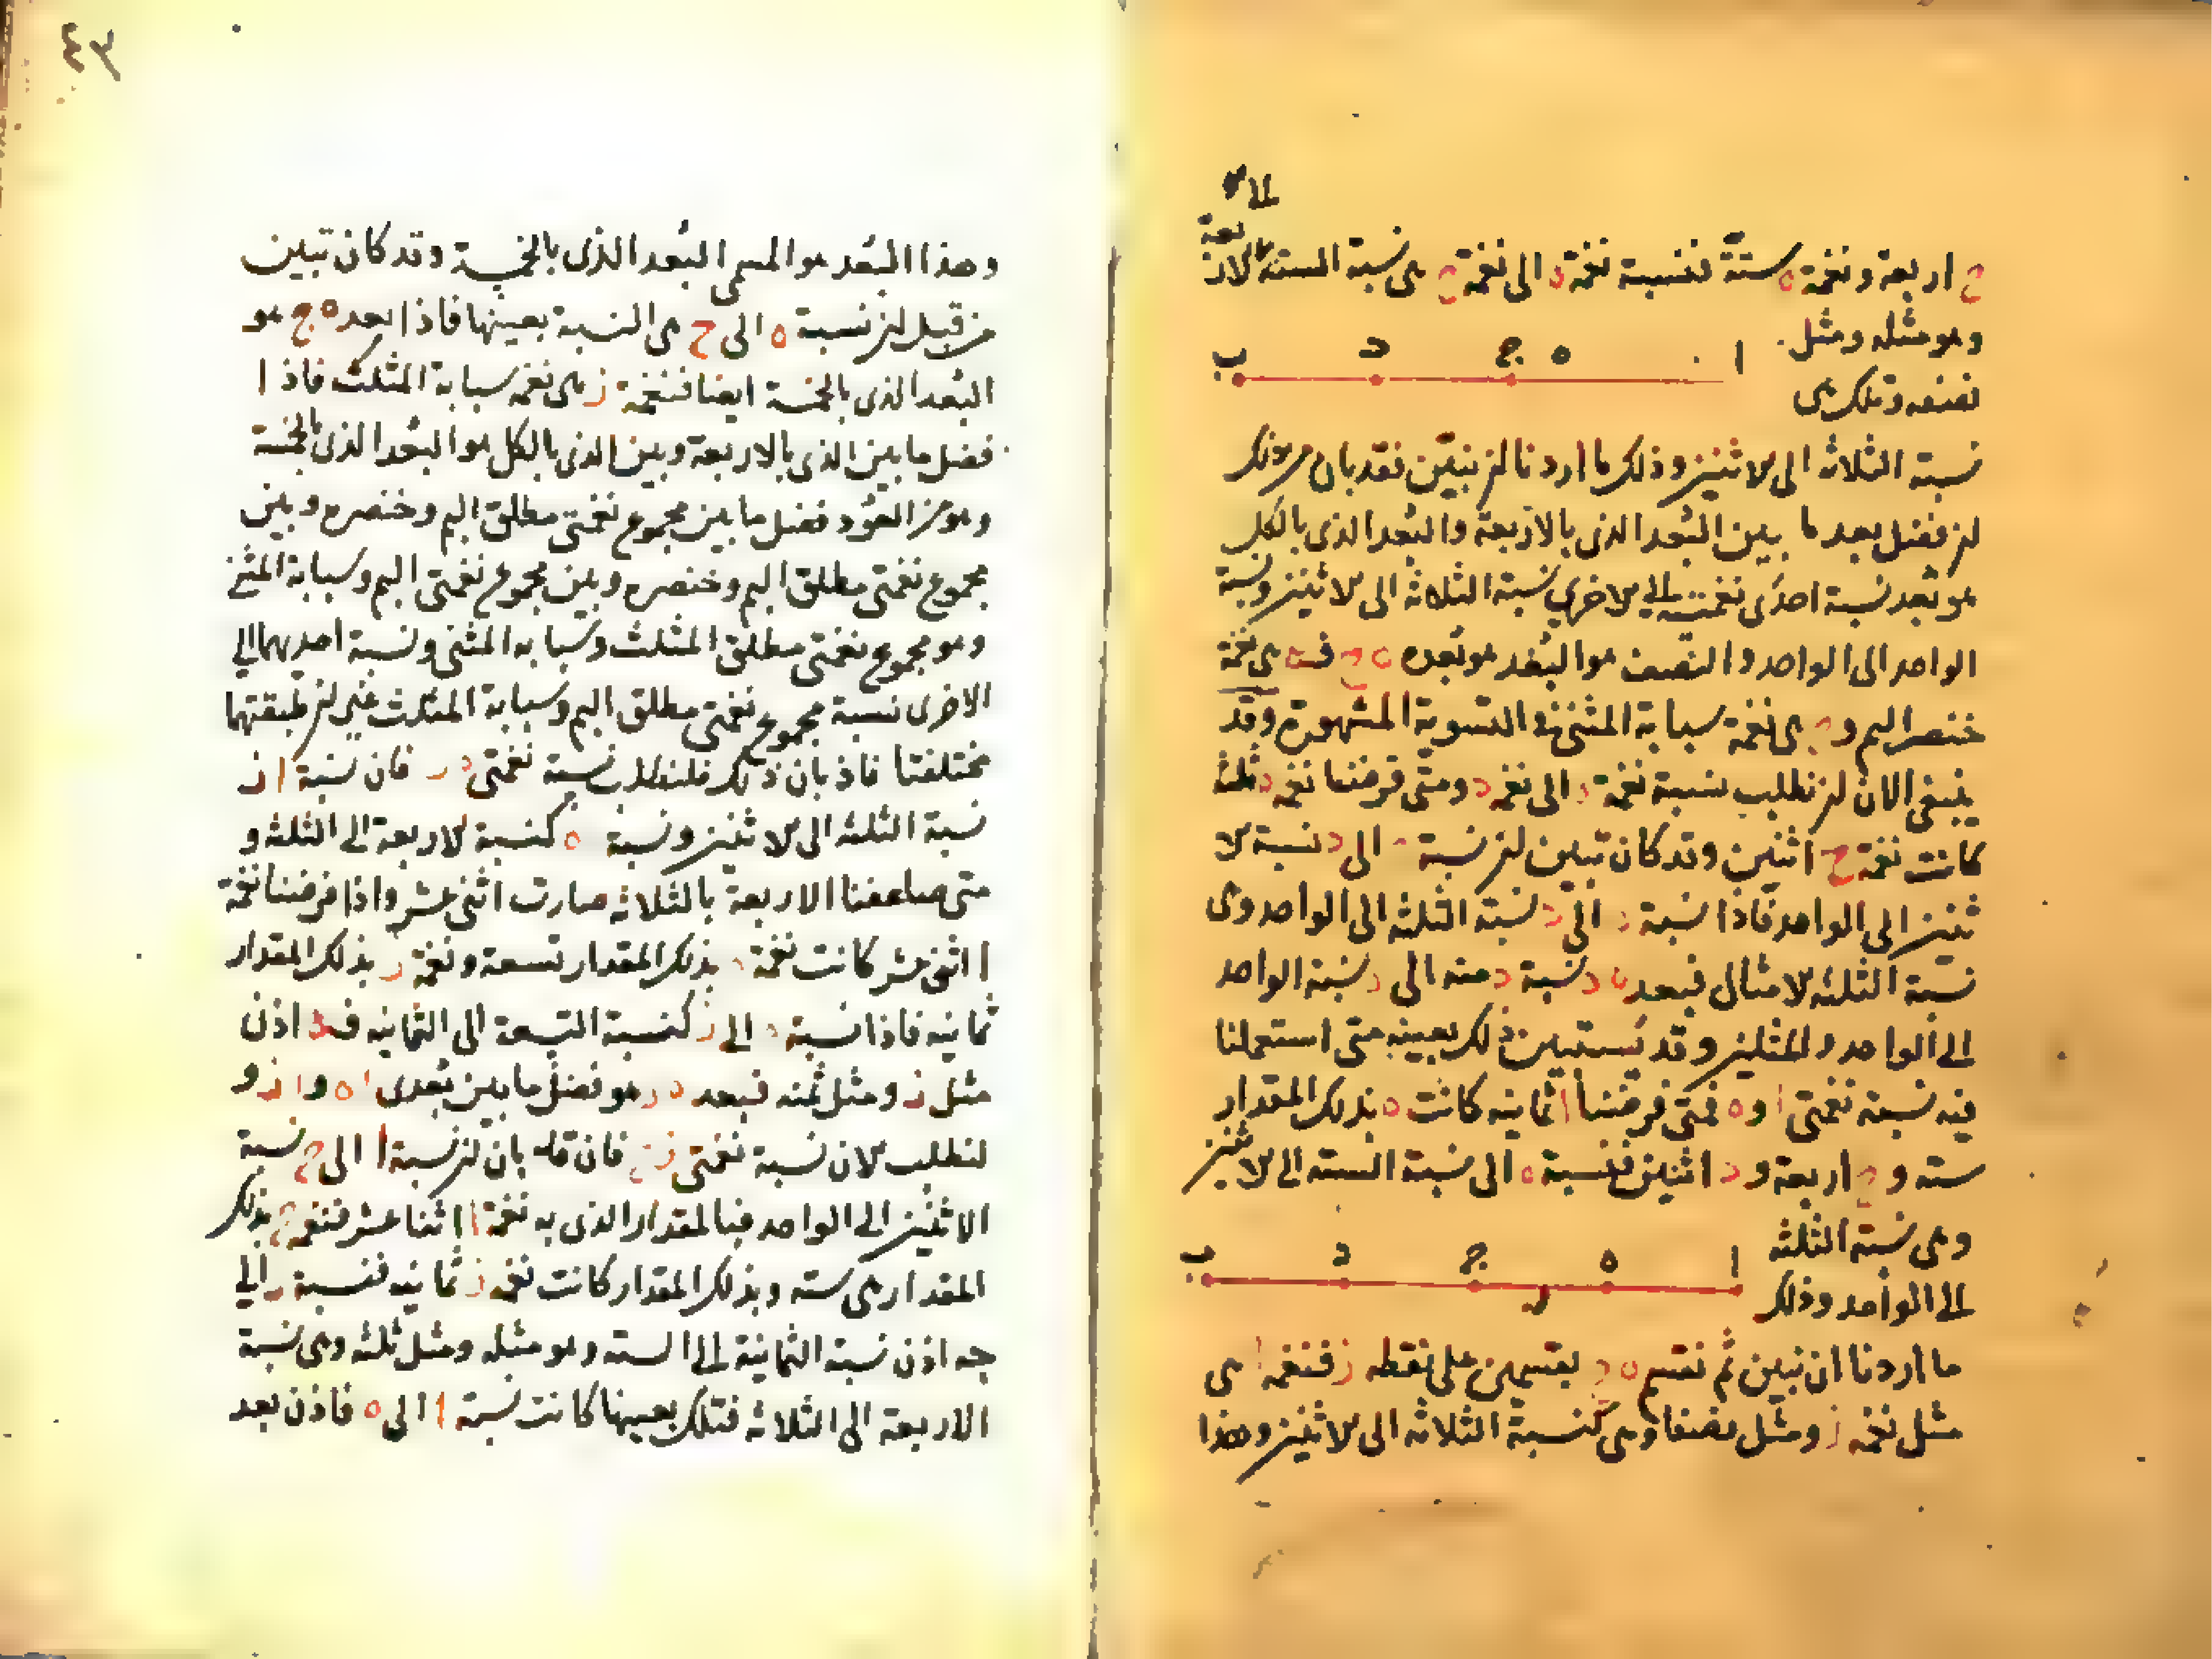 لاﻟﺎ
بعة
ج اربعة ونغمة ه ستة فنسبة نغمة ه الى نغمة ج هى نسبة الستة الى الار
وهو مثله ومثل
ا ه ج د ب
نصفه وتلك هى
نسبة الثلاثة الى الاثنين وذلك ما اردنا ان نبين فقد بان من ذلك
ان فضل بعد ما بين البعد الذى بالاربعة والبعد الذى بالكل
هو بعد نسبة احدى نغمتيه الى الاخرى نسبة الثلاثة الى الاثنين ونسبة
الواحد الى الواحد والنصف هو البعد هو بعد ه ج فـ ه هى نغمة
خنصر البم و ج هى نغمة سبابة المثنى فى التسوية المشهورة وقد
ينبغى الان ان نطلب نسبة نغمة ه الى نغمة د ومتى فرضنا نغمة ه ثلثة
كانت نغمة ج اثنين وقد كان تبين ان نسبة ج الى د نسبة الا
ثنين الى الواحد فاذا نسبة ه الى د نسبة الثلثة الى الواحد وهى
نسبة الثلثة الامثال فبعد ه د نسبة د منه الى ه نسبة الواحد
الى الواحد والمثلين وقد يستبين ذلك بعينه متى استعملنا
فيه نسبة نغمتى ا و ه فمتى فرضنا ا ثمانيه كانت ه بذلك المقدار
سته و ج اربعة و د اثنين فنسبة ه الى نسبة الستة الى الاثنين
وهى نسبة الثلثة
ا ه ج د ب
ز
الى الواحد وذلك
ما اردنا ان نبين ثم نقسم ه ج بقسمين على نقطه ز فنغمة ا هى
مثل نغمة ز ومثل نصفها وهى كنسبة الثلاثة الى الاثنين وهذا
٤٣
وهذا البعد هو المسمى البعد الذى بالخمسة وقد كان تبين
من قبل ان نسبة ه الى ج هى النسبة بعينها فاذا بعد ه ج هو
البعد الذى بالخمسة ايضا فنغمة ز هى نغمه سبابة المثلث فاذا
فضل ما بين الذى بالاربعة وبين الذى بالكل هو البعد الذى بالخمسة
وهو من العود فضل ما بين مجموع نغمتى مطلق البم وخنصره وبين
مجموع نغمتى مطلق البم وخنصره وبين مجموع نغمتى البم وسبابة المثنى
وهو مجموع نغمتى مطلق المثلث وسبابه المثنى ونسبة احديهما الى
الاخرى نسبة مجموع نغمتى مطلق البم وسبابة المثلث غير ان طبقتهما
مختلفتا فاذ بان ذلك فلنطلب نسبة نغمتى ه ز فان نسبة ا ز
نسبة الثلثه الى الاثنين ونسبة ه كنسبة الاربعة الى الثلثه و
متى ضاعفنا الاربعة بالثلاثه صارت اثنى عشر واذا فرضنا نغمة
ا اثنى عشر كانت نغمة ه بذلك المقدار تسعة ونغمة ز بذلك المقدار
ثمانيه فاذا نسبة ه الى ز كنسبة التسعة الى الثمانيه فـ ه اذن
مثل ز ومثل ثمنه فبعد ه ز هو فضل ما بين بعدى ا ه و ا ز و
لنطلب الان نسبة نغمتى ز ج فان قد بان ان نسبة ا الى ج نسبة
الاثنين الى الواحد فبالمقدار الذى به نغمة ا اثنا عشر فنغمة ج بذلك
المقدار هى سته وبذلك المقدار كانت نغمه ز ثمانيه فنسبة ز الى
جه اذن نسبة الثمانية الى الستة وهو مثله ومثل ثلثه وهى نسبة
الاربعة الى الثلاثه فتلك بعينها كانت نسبة ا الى ه فاذن بعد